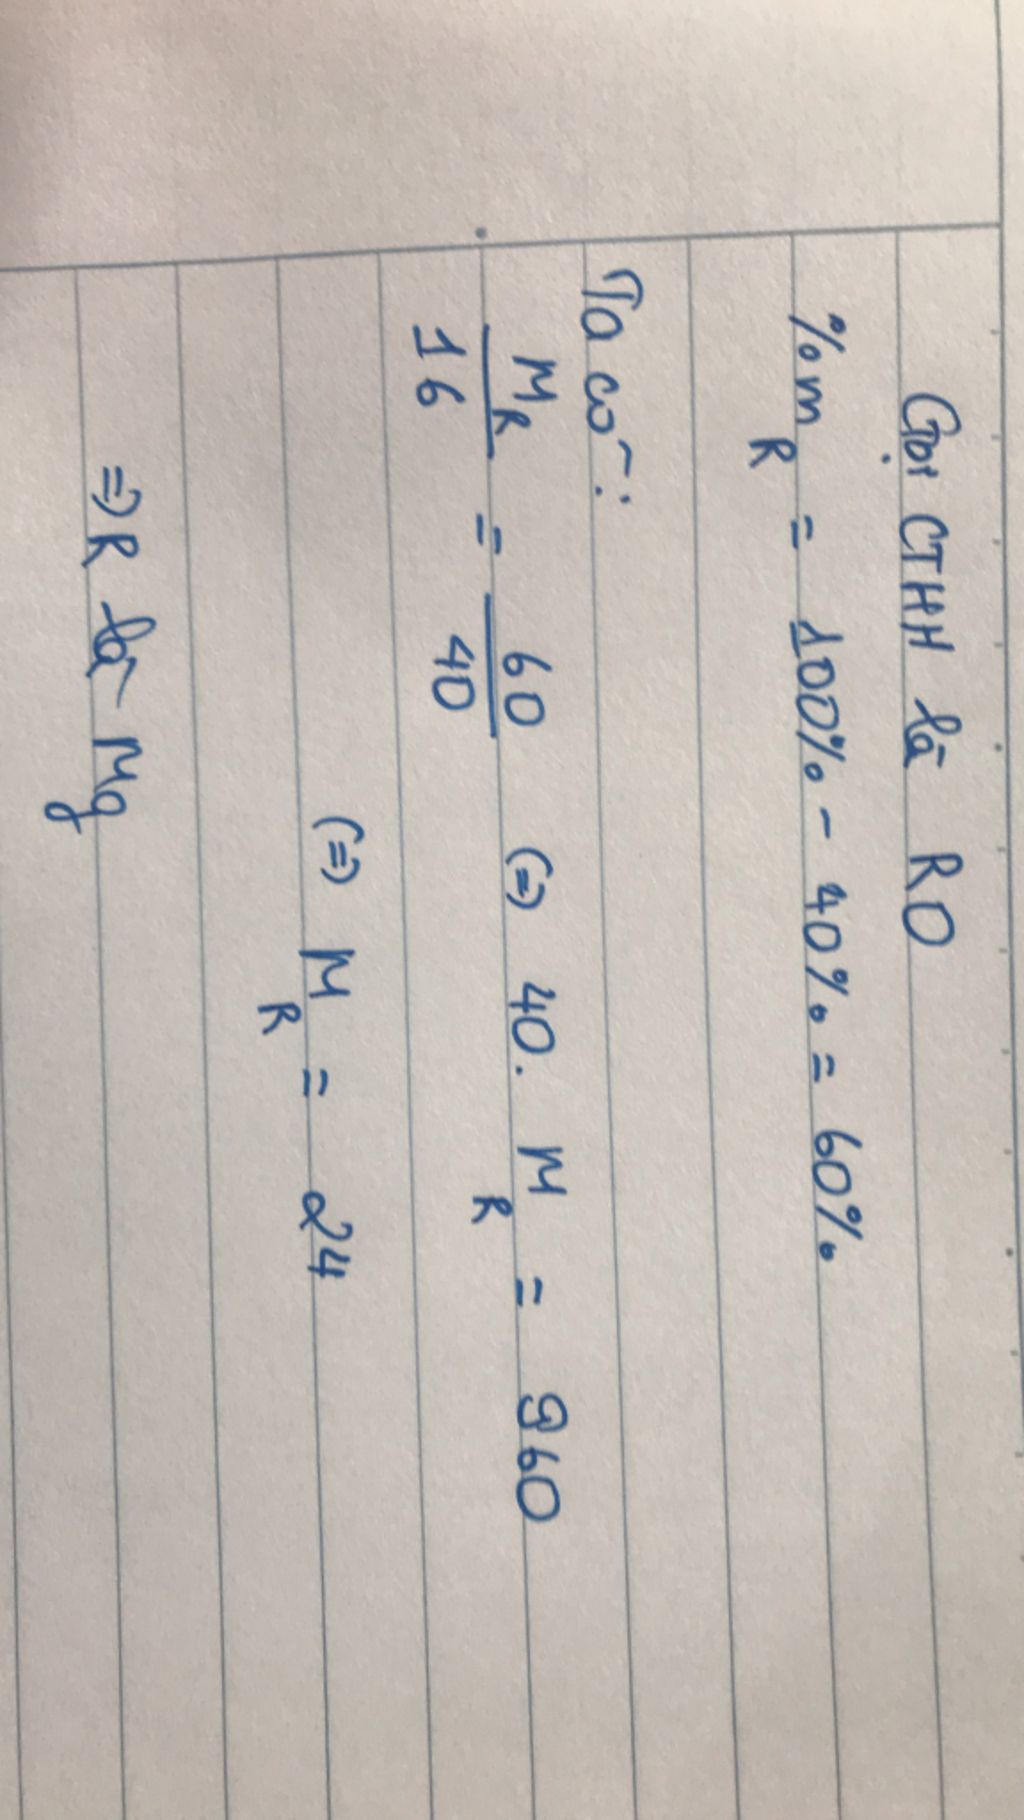 Gọi CTHH là RO
%m_R = 100% - 40% = 60%
Ta có:
M_R/16 = 60/40 (=) 40. M_R = 960
(=) M_R = 24
=) R là Mg